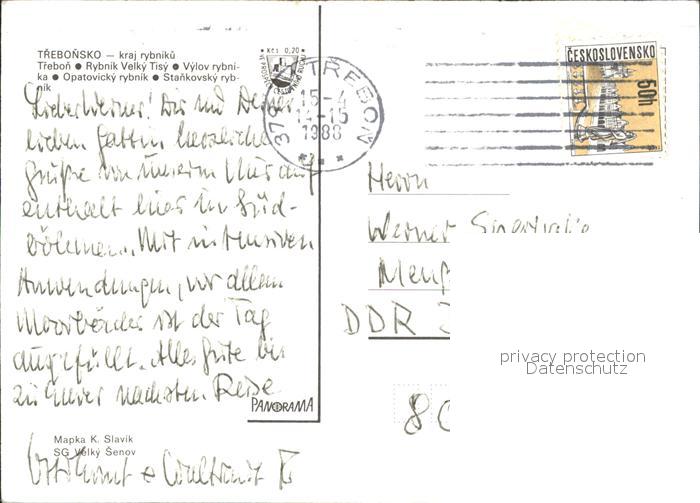 TŘEBOŇSKO – kraj rybníků
Třeboň ● Rybník Velký Tisý ● Výlov rybní-
ka ● Opatovický rybník ● Staňkovský ryb-
ník
Kčs 0,20
379 TŘEBOŇ
15-4
14-15
1988
ČESKOSLOVENSKO
50h
Lieber Werner! Dir und Deiner
lieben Gattin herzliche
Grüße von unserem Kur auf
enthalt hier in Süd-
böhmen. Mit intensiven
Anwendungen, vor allem
Moorbäder ist der Tag
ausgefüllt. Alles Gute bis
zu Eurer nächsten Reise
Waltraut
Herrn
Werner
DDR
80
PANORAMA
Mapka K. Slavík
SG Velký Šenov
privacy protection
Datenschutz